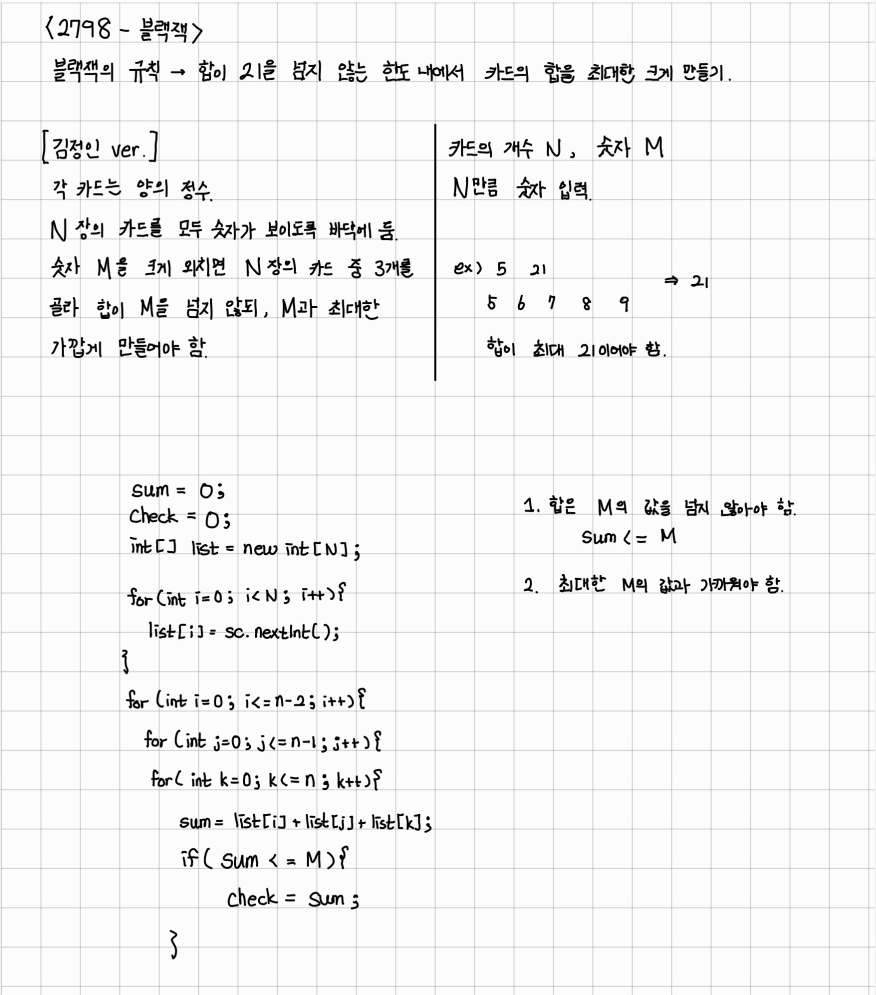 <2798 - 블랙잭>
블랙잭의 규칙 → 합이 21을 넘지 않는 한도 내에서 카드의 합을 최대한 크게 만들기.
[김정인 ver.]
각 카드는 양의 정수.
N 장의 카드를 모두 숫자가 보이도록 바닥에 둠.
숫자 M을 크게 외치면 N장의 카드 중 3개를
골라 합이 M을 넘지 않되, M과 최대한
가깝게 만들어야 함.
카드의 개수 N, 숫자 M
N만큼 숫자 입력.
ex) 5 21
5 6 7 8 9 ⇒ 21
합이 최대 21이어야 함.
sum = 0;
check = 0;
int[] list = new int[N];
for(int i=0; i<N; i++){
list[i] = sc.nextInt();
}
for (int i=0; i<=n-2; i++){
for (int j=0; j<=n-1; j++){
for( int k=0; k<=n; k++){
sum = list[i] + list[j] + list[k];
if( sum <= M){
check = sum;
}
1. 합은 M의 값을 넘지 않아야 함.
sum <= M
2. 최대한 M의 값과 가까워야 함.